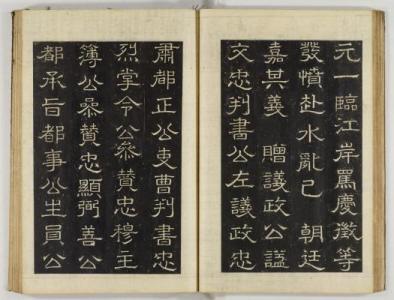 元一臨江岸罵慶徵等
發憤赴水亂已 朝廷
嘉其義 贈議政公謚
文忠判書公左議政忠
肅都正公吏曹判書忠
烈掌令公叅贊忠穆主
簿公叅贊忠顯弼善公
都承旨都事公生員公